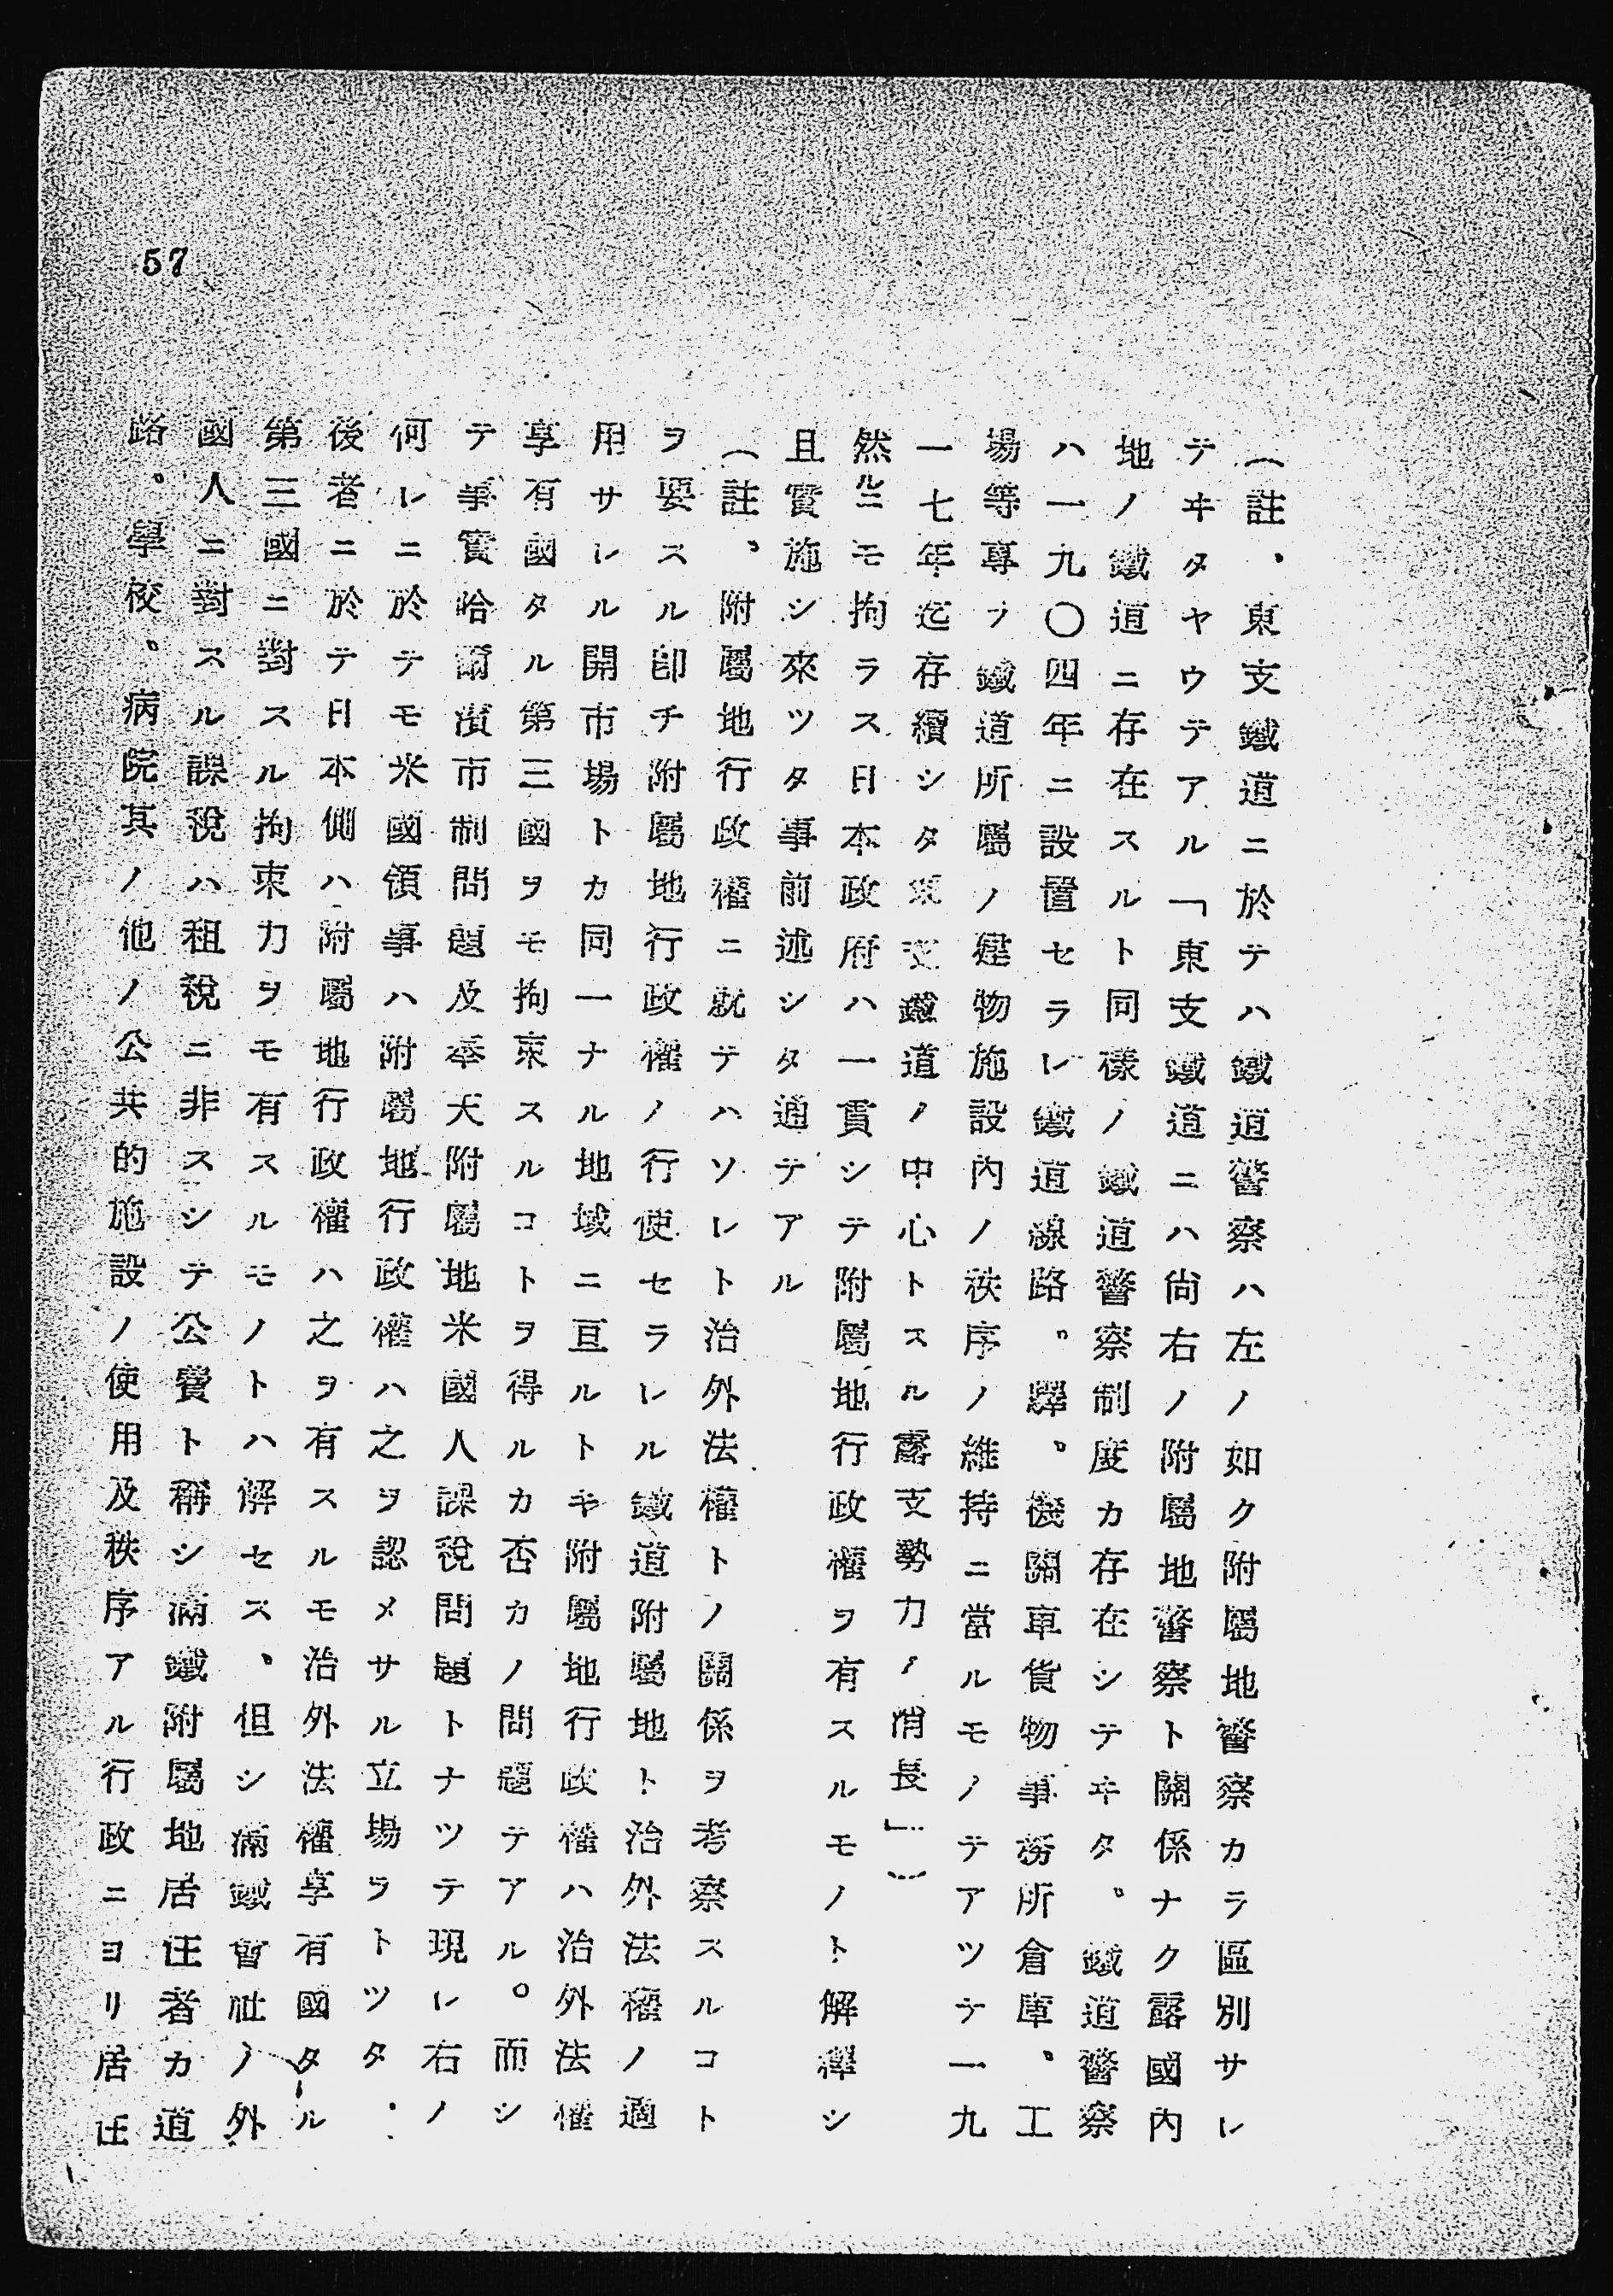 57
(註、東支鐵道ニ於テハ鐵道警察ハ左ノ如ク附屬地警察カラ區別サレ
テヰタヤウテアル「東支鐵道ニハ尙右ノ附屬地警察ト關係ナク露國內
地ノ鐵道ニ存在スルト同樣ノ鐵道警察制度カ存在シテヰタ。鐵道警察
ハ一九〇四年ニ設置セラレ鐵道線路。驛。機關車貨物事務所倉庫。工
場等專ラ鐵道所屬ノ建物施設內ノ秩序ノ維持ニ當ルモノテアツテ一九
一七年迄存續シタ東支鐵道ノ中心トスル露支勢力ノ消長」)
然ルニモ拘ラス日本政府ハ一貫シテ附屬地行政權ヲ有スルモノト解釋シ
且實施シ來ツタ事前述シタ通テアル
(註、附屬地行政權ニ就テハソレト治外法權トノ關係ヲ考察スルコト
ヲ要スル卽チ附屬地行政權ノ行使セラレル鐵道附屬地ト治外法權ノ適
用サレル開市場トカ同一ナル地域ニ亘ルトキ附屬地行政權ハ治外法權
享有國タル第三國ヲモ拘束スルコトヲ得ルカ否カノ問題テアル。而シ
テ事實哈爾濱市制問題及奉天附屬地米國人課稅問題トナツテ現レ右ノ
何レニ於テモ米國領事ハ附屬地行政權ハ之ヲ認メサル立場ヲトツタ.
後者ニ於テ日本側ハ附屬地行政權ハ之ヲ有スルモ治外法權享有國タル
第三國ニ對スル拘束力ヲモ有スルモノトハ解セス、但シ滿鐵會社ノ外
國人ニ對スル課稅ハ租稅ニ非スシテ公費ト稱シ滿鐵附屬地居住者カ道
路。學校。病院其ノ他ノ公共的施設ノ使用及秩序アル行政ニヨリ居住